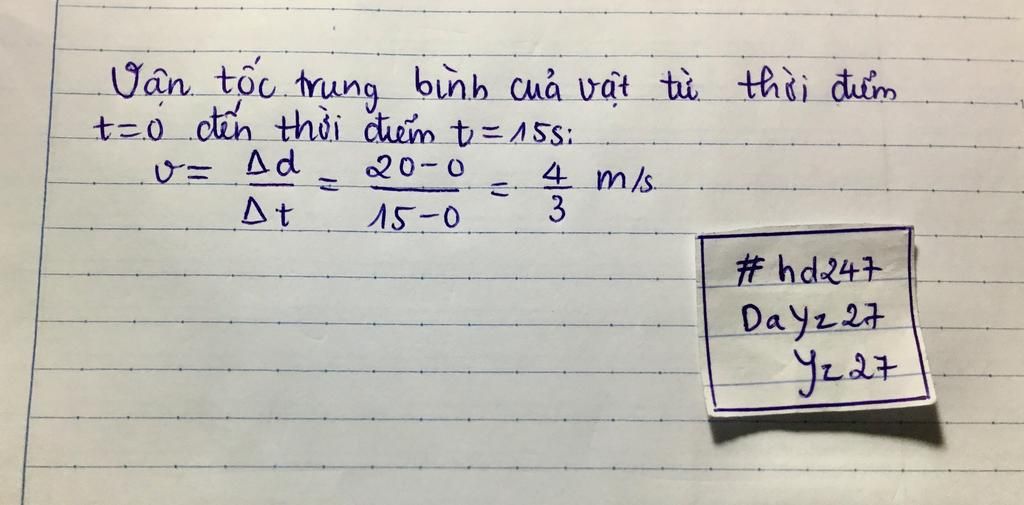 Vận tốc trung bình của vật từ thời điểm
t=0 đến thời điểm t=15s:
v= Δd/Δt = 20-0/15-0 = 4/3 m/s
# hd247
DaYz27
Yz27